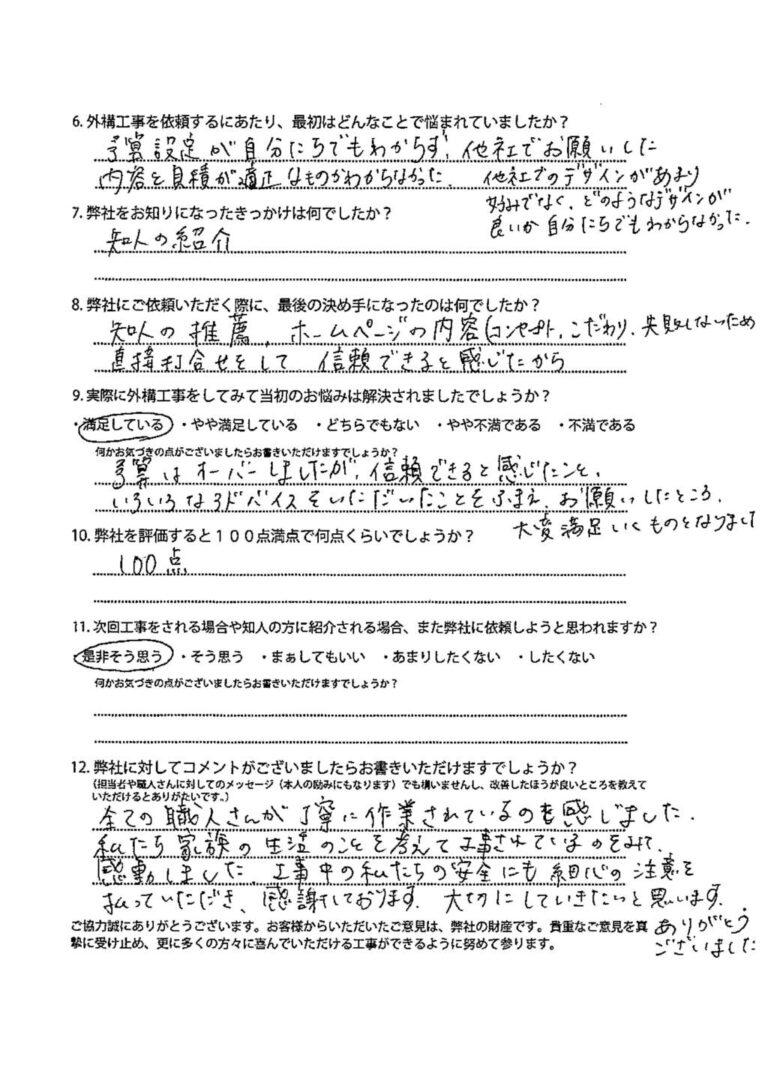 6. 外構工事を依頼するにあたり、最初はどんなことで悩まれていましたか？
予算設定が自分たちでもわからず、他社でお願いした
内容と見積が適正なものがわからなかった. 他社でのデザインがあまり
好みでなく、どのようなデザインが
良いか自分たちでもわからなかった.
7. 弊社をお知りになったきっかけは何でしたか？
知人の紹介
8. 弊社にご依頼いただく際に、最後の決め手になったのは何でしたか？
知人の推薦、ホームページの内容(コンセプト、こだわり、失敗しないため
直接打合せをして 信頼できると感じたから
9. 実際に外構工事をしてみて当初のお悩みは解決されましたでしょうか？
・満足している ・やや満足している ・どちらでもない ・やや不満である ・不満である
何かお気づきの点がございましたらお書きいただけますでしょうか？
予算はオーバーしましたが、信頼できると感じたこと、
いろいろなアドバイスをいただいたことをふまえ、お願いしたところ、
大変満足いくものとなりまして
10. 弊社を評価すると１００点満点で何点くらいでしょうか？
100点
11. 次回工事をされる場合や知人の方に紹介される場合、また弊社に依頼しようと思われますか？
・是非そう思う ・そう思う ・まぁしてもいい ・あまりしたくない ・したくない
何かお気づきの点がございましたらお書きいただけますでしょうか？
12. 弊社に対してコメントがございましたらお書きいただけますでしょうか？
（担当者や職人さんに対してのメッセージ（本人の励みにもなります）でも構いませんし、改善したほうが良いところを教えて
いただけるとありがたいです。）
全ての職人さんが丁寧に作業されているのを感じました.
私たち家族の生活のことを考えて工事されているのをみて、
感動しました. 工事中の私たちの安全にも細心の注意を
払っていただき、感謝しております. 大切にしていきたいと思います.
ご協力誠にありがとうございます。お客様からいただいたご意見は、弊社の財産です。貴重なご意見を真
摯に受け止め、更に多くの方々に喜んでいただける工事ができるように努めて参ります。
ありがとう
ございました